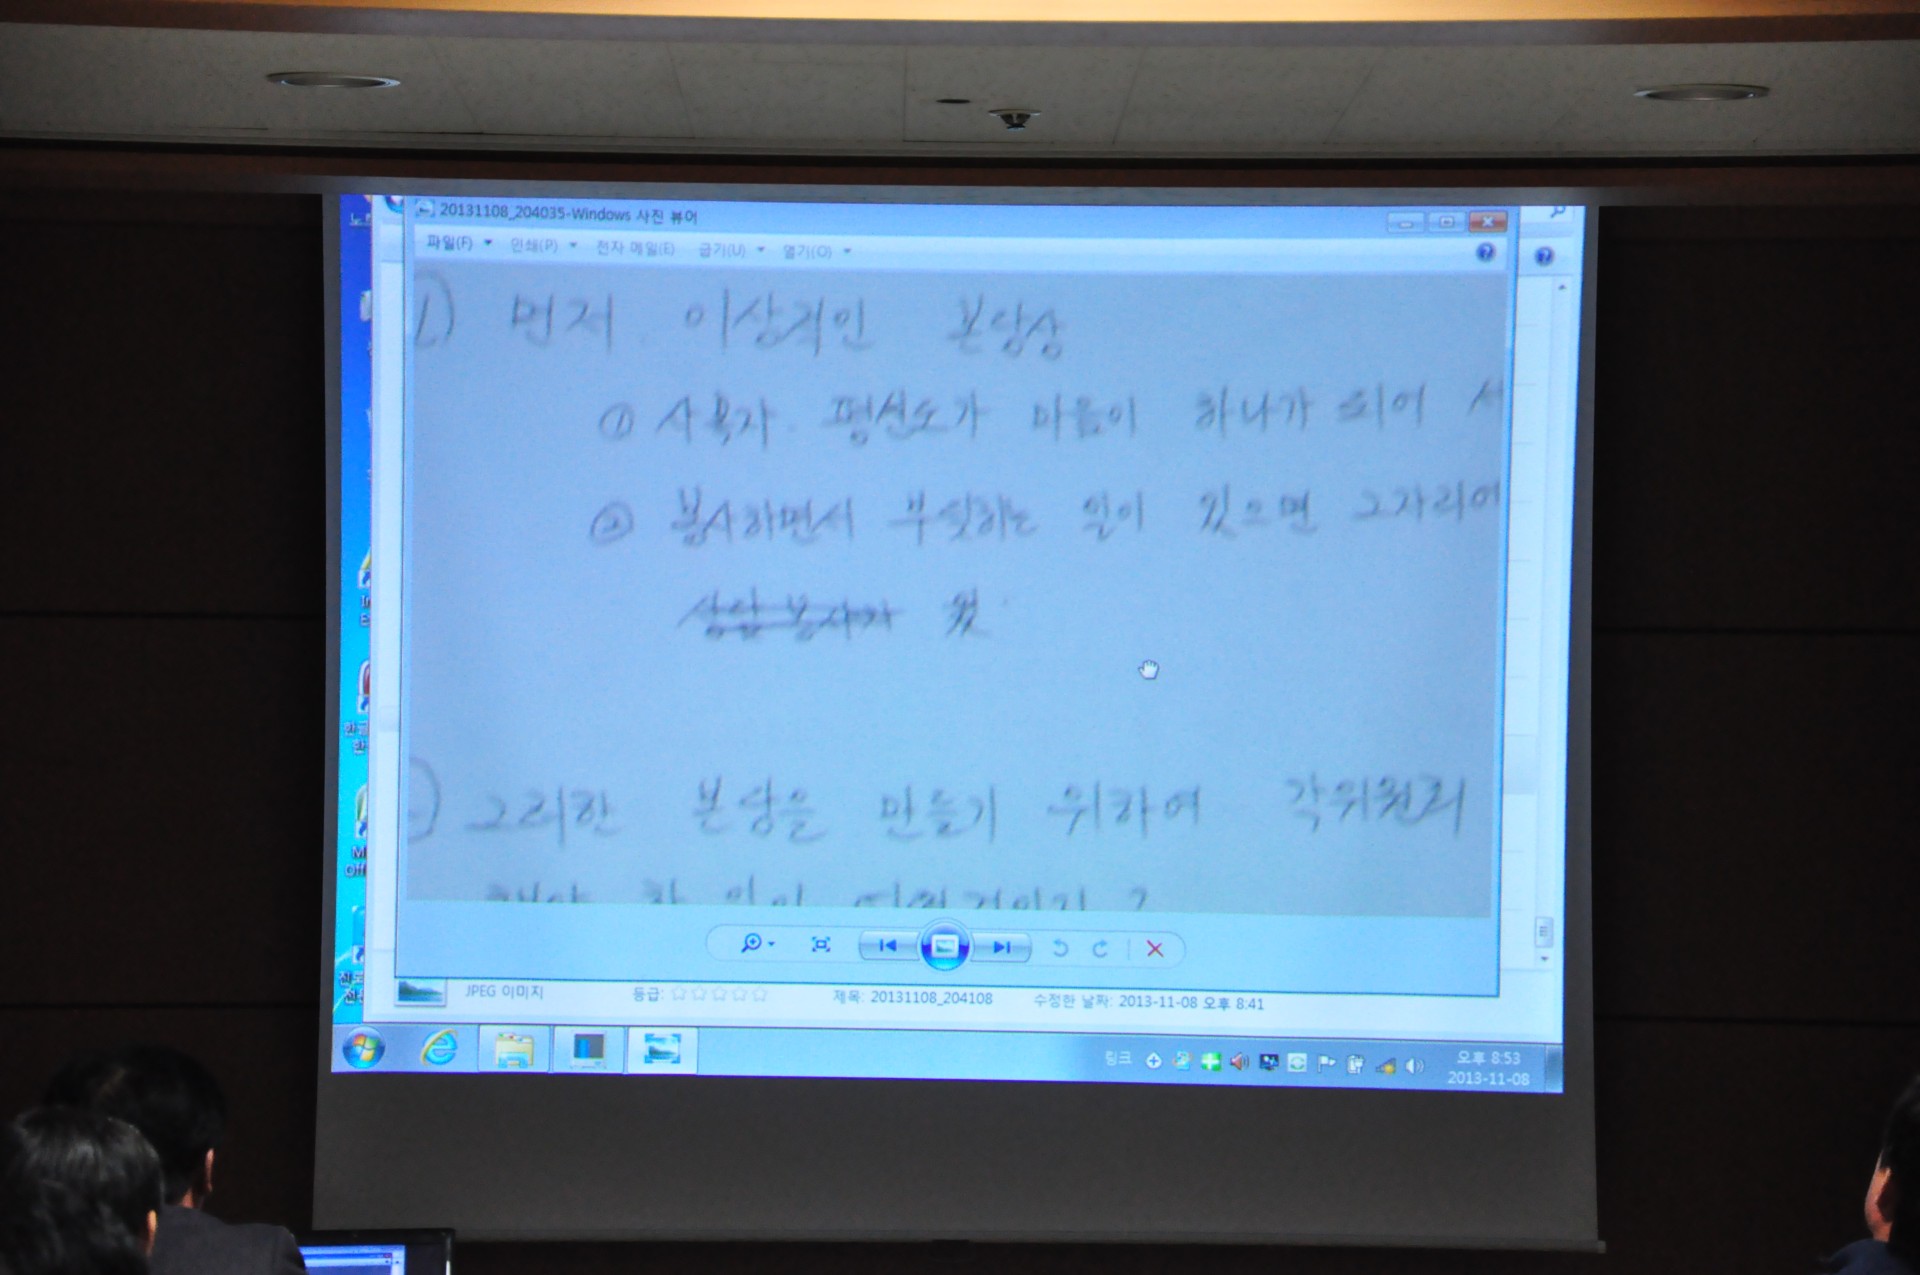 20131108_204035-Windows 사진 뷰어
파일(F) 인쇄(P) 전자 메일(E) 굽기(U) 열기(O)
1) 먼저 이상적인 본당상
① 사목자. 평신도가 마음이 하나가 되어 서
② 봉사하면서 부딪히는 일이 있으면 그자리에
상담봉사가
그러한 본당을 만들기 위하여 각위원회
해야 할 일이 어떤것인지?
JPEG 이미지 등급: ☆☆☆☆☆ 제목: 20131108_204108 수정한 날짜: 2013-11-08 오후 8:41
링크 오후 8:53
2013-11-08